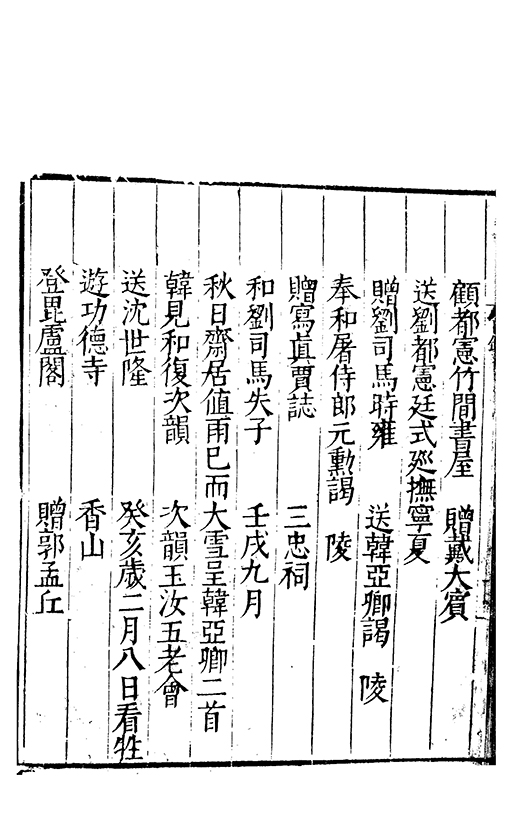 顧都憲竹間書屋　贈戴大賓
送劉都憲廷式廵撫寧夏
贈劉司馬時雍　送韓亞卿謁　陵
奉和屠侍郎元勳謁　陵
贈寫真賈誌　三忠祠
和劉司馬失子　壬戌九月
秋日齋居值雨已而大雪呈韓亞卿二首
韓見和復次韻　次韻玉汝五老會
送沈世隆　癸亥歲二月八日看牲
遊功德寺　香山
登毘盧閣　贈郭孟丘